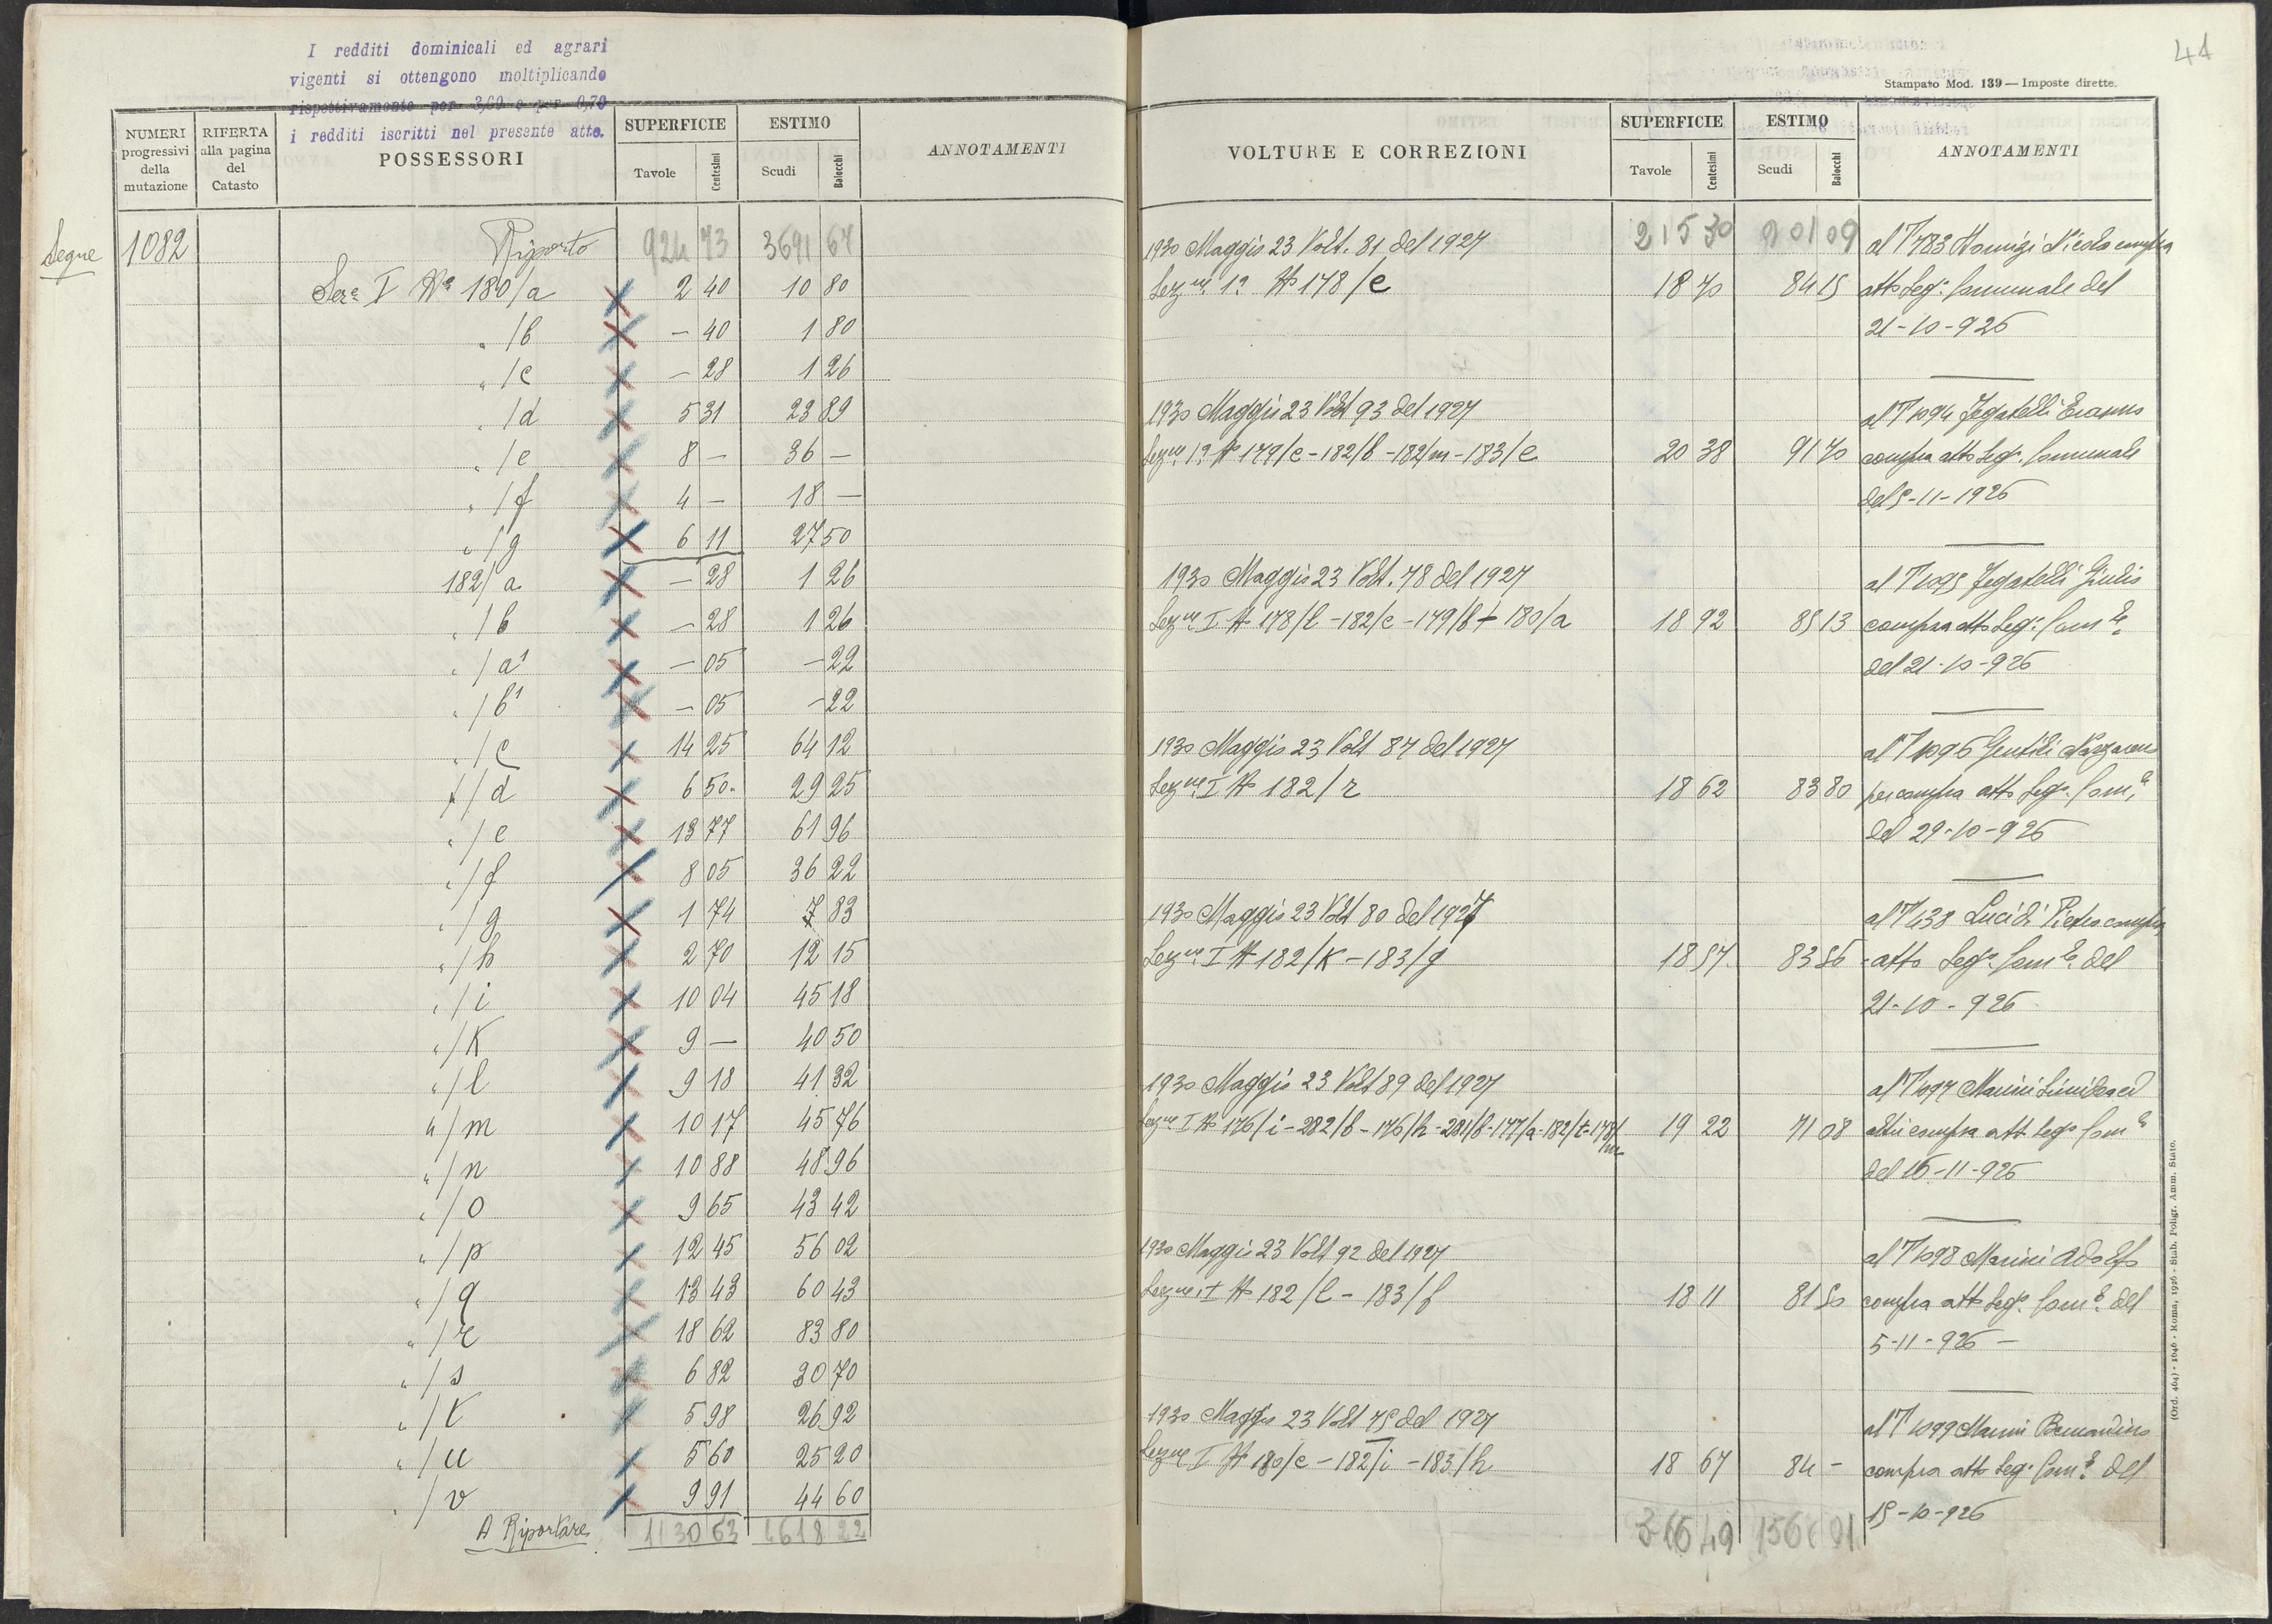 I redditi dominicali ed agrari
vigenti si ottengono moltiplicando
rispettivamente per 3,60 e per 0,70
i redditi iscritti nel presente atto.
NUMERI progressivi della mutazione
RIFERTA alla pagina del Catasto
POSSESSORI
SUPERFICIE
Tavole Centesimi
ESTIMO
Scudi Baiocchi
ANNOTAMENTI
Segue 1082 Riporto 924 73 3691 67
Sez.e I N° 180/a 2 40 10 80
" /b — 40 1 80
" /c — 28 1 26
" /d 5 31 23 89
" /e 8 — 36 —
" /f 4 — 18 —
" /g 6 11 27 50
182/a — 28 1 26
" /b — 28 1 26
" /a¹ — 05 — 22
" /b¹ — 05 — 22
" /c 14 25 64 12
" /d 6 50 29 25
" /e 13 77 61 96
" /f 8 05 36 22
" /g 1 74 7 83
" /h 2 70 12 15
" /i 10 04 45 18
" /K 9 — 40 50
" /l 9 18 41 32
" /m 10 17 45 76
" /n 10 88 48 96
" /o 9 65 43 42
" /p 12 45 56 02
" /q 13 43 60 43
" /r 18 62 83 80
" /s 6 82 30 70
" /t 5 98 26 92
" /u 5 60 25 20
" /v 9 91 44 60
A Riportare 1130 63 4618 22
41
Stampato Mod. 139 — Imposte dirette.
VOLTURE E CORREZIONI
SUPERFICIE
Tavole Centesimi
ESTIMO
Scudi Baiocchi
ANNOTAMENTI
1930 Maggio 23 Volt. 81 del 1927 215 30 al T 783 Nicola compra
Sez.ne 1ª N° 178/e 18 70 84 15 atto Seg.o Comunale del
21-10-926
1930 Maggio 23 Volt 93 del 1927 al T 1094 Fegatelli Erasmo
Sez.ne 1ª N° 179/c - 182/b - 182/m - 183/e 20 38 91 70 compra atto Seg.o Comunale
del 5-11-1926
1930 Maggio 23 Volt. 78 del 1927 al T 1095 Fegatelli Giulio
Sez.ne I N° 178/l - 182/c - 179/b + 180/a 18 92 85 13 compra atto Seg.o Com.le
del 21-10-926
1930 Maggio 23 Volt 87 del 1927 al T 1096 Gentili Nazzareno
Sez.ne I N° 182/r 18 62 83 80 per compra atto Seg.o Com.le
del 29-10-926
1930 Maggio 23 Volt 80 del 1927 al T 438 Lucidi Pietro compra
Sez.ne I N° 182/K - 183/g 18 57 83 56 atto Seg.o Com.le del
21-10-926
1930 Maggio 23 Volt 89 del 1927 al T 1097 Marini ed
Sez.ne I N° 176/i - 282/b - 176/h - 281/b - 177/a - 182/t - 178/m 19 22 71 08 altri compra atto Seg.o Com.le
del 15-11-926
1930 Maggio 23 Volt 92 del 1927 al T 1098 Marini Adolfo
Sez.ne I N° 182/l - 183/f 18 11 81 50 compra atto Seg.o Com.le del
5-11-926 —
1930 Maggio 23 Volt 75 del 1927 al T 1099 Marini Bernardino
Sez.ne I N° 180/e - 182/i - 183/h 18 67 84 — compra atto Seg.o Com.le del
15-10-926
(Ord. 464) - 1646 - Roma, 1926 - Stab. Poligr. Amm. Stato.